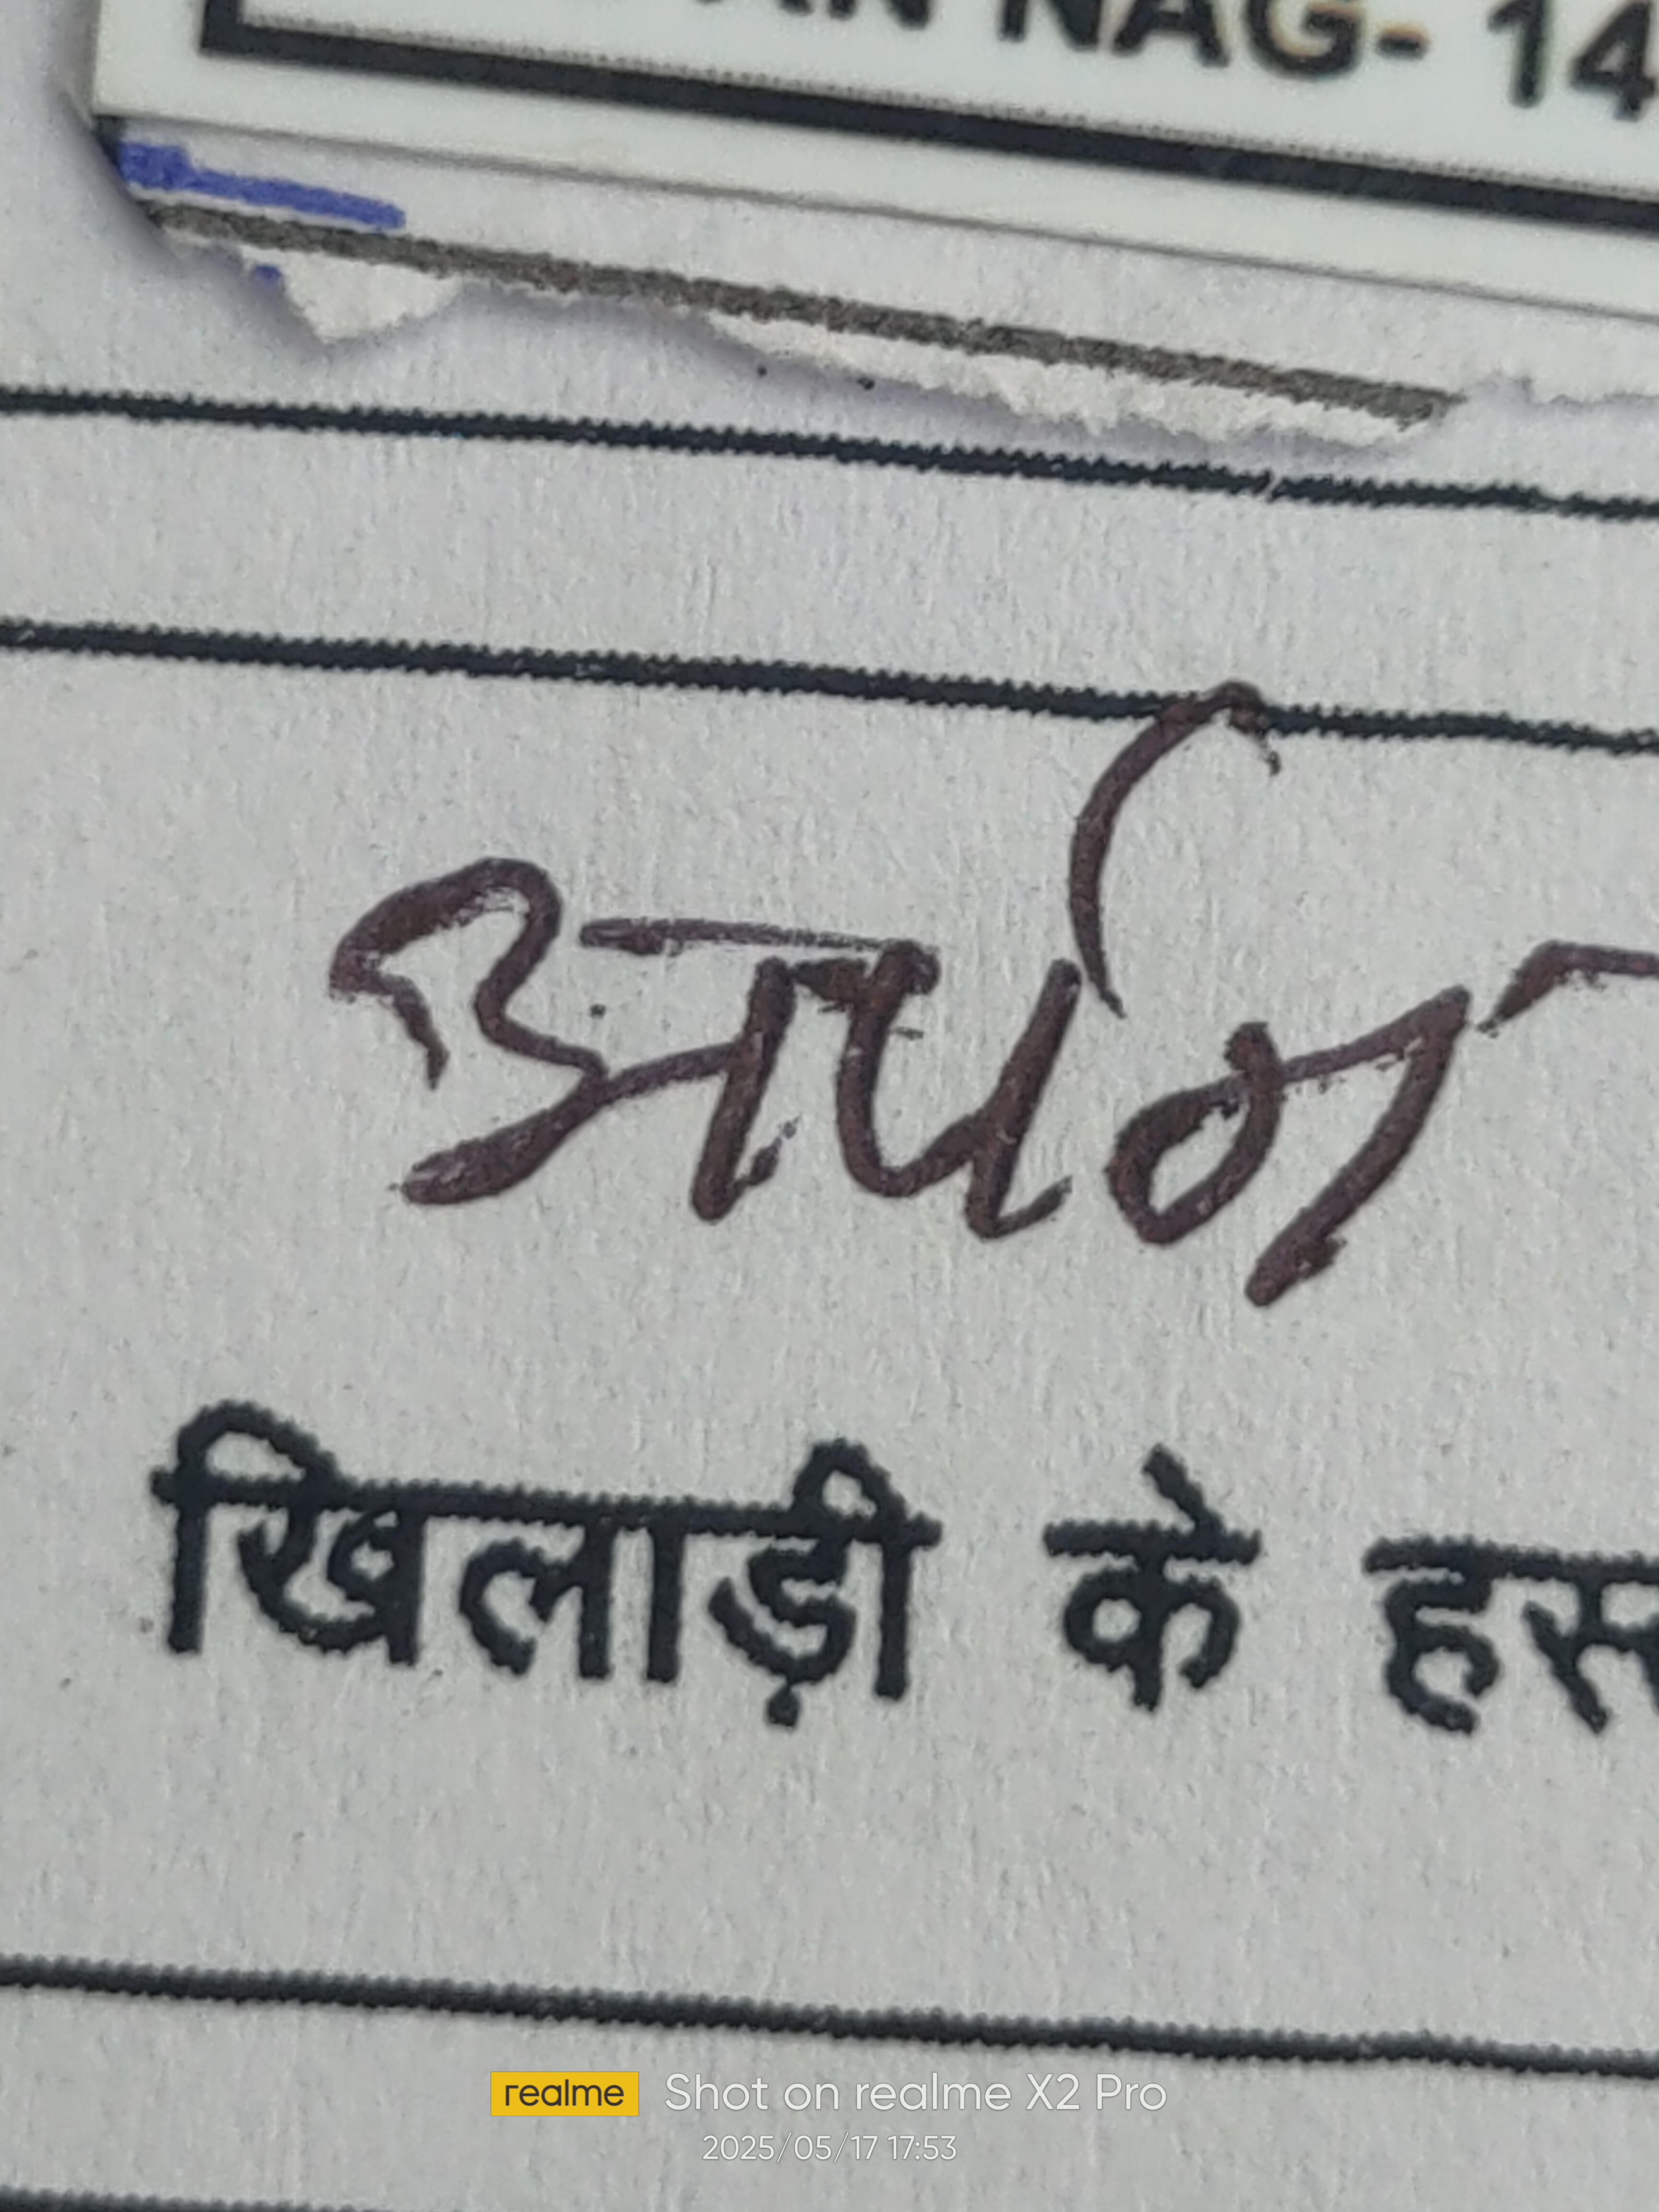 NAG- 14
अर्पन
खिलाड़ी के हस्
realme Shot on realme X2 Pro
2025/05/17 17:53